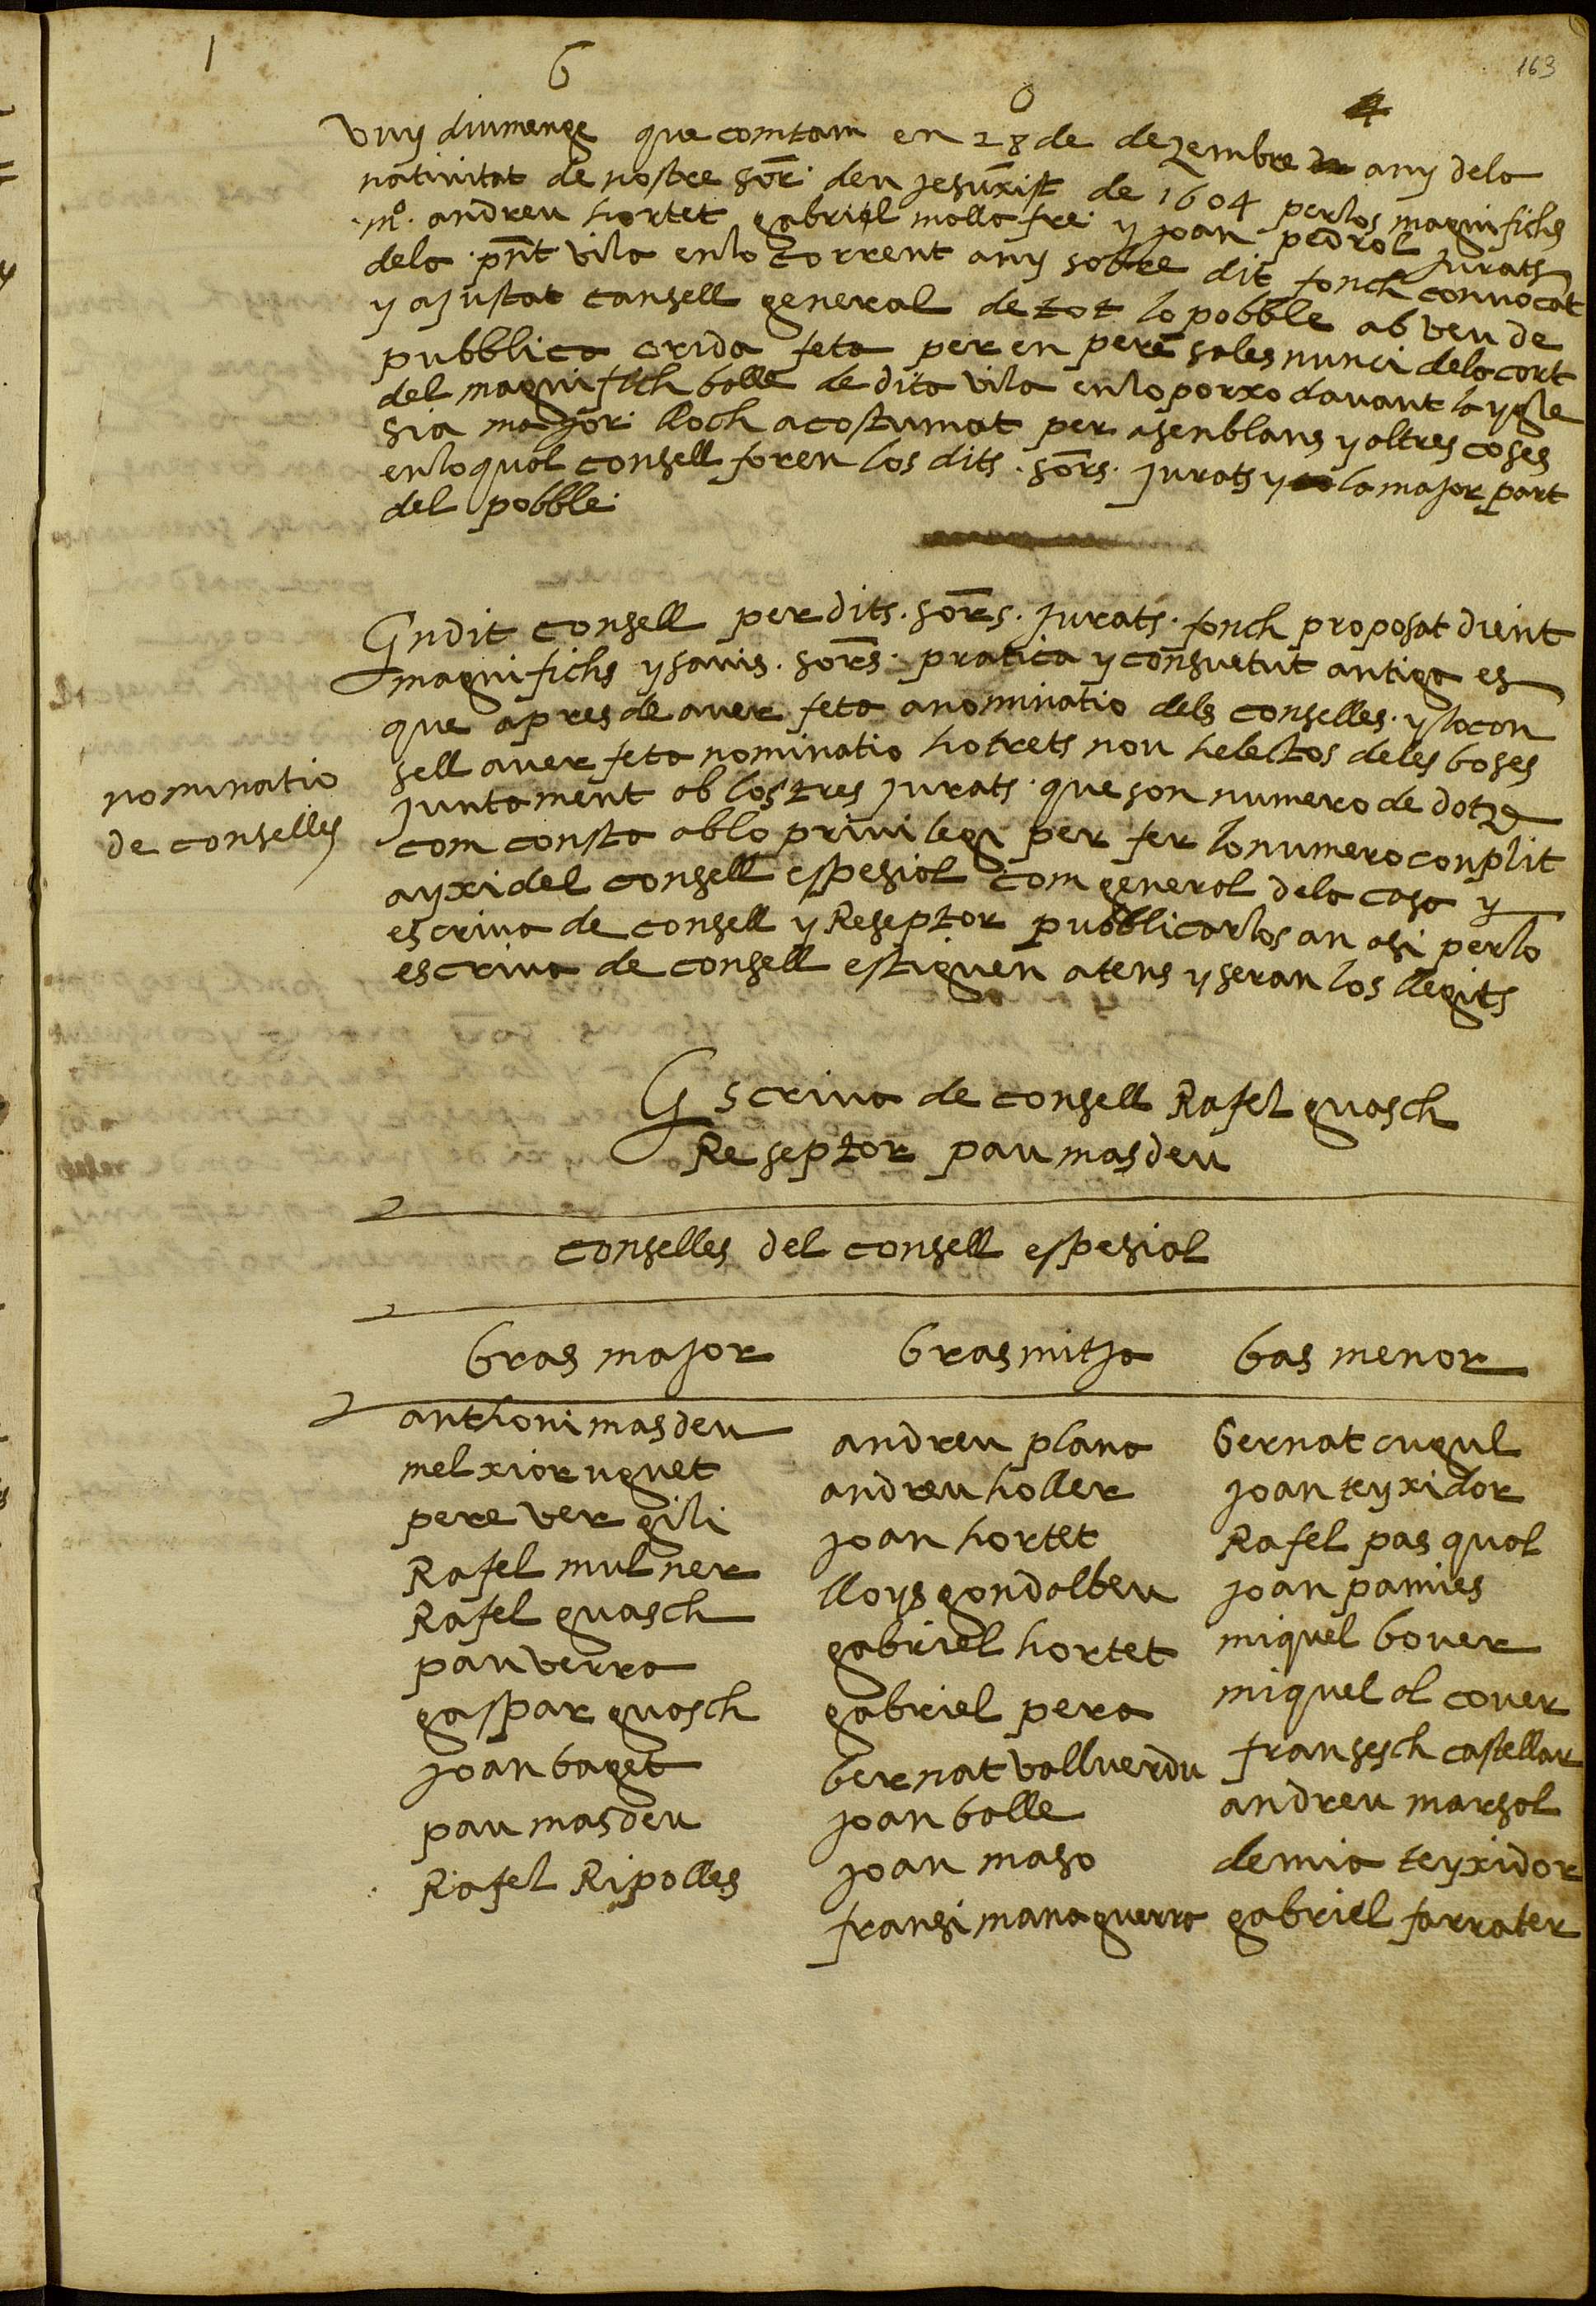 1 6 0 4
163
vuy diumenge que comtam en 28 de dezembre any dela
nativitat de nostre sor. deu Jesuxist de 1604 perlos magnifichs
.mº. andreu hortet gabriel mollo fre y joan pedrol jurats
dela pnt vila enlo corrent any sobre dit fonch convocat
y ajustat consell general de tot lo pobble ab veu de
pubblica crida feta per en pere sales nunci dela cort
del magnifich balle de dita vila enlo porxo davant la ygle
sia major lloch acostumat per asenblans y altres coses
enlo qual consell foren los dits sors. jurats y la major part
del pobble
nominatio
de conselles
En dit consell per dits. sors. jurats. fonch proposat dient
magnifichs y savis. sors. pratica y consuetut antiga es
que apres de aver feta anominatio dels conselles. y lo con
sell aver feta nominatio ho trets nou helectos deles boses
juntament ab los tres jurats. que son numero de dotze
com consta ablo privilegi per fer lo numero conplit
ayxi del consell espesial com general dela casa y
escriva de consell y Reseptor pubblicarlos an asi perlo
escriva de consell estiguen atens y seran los llegits
Escriva de consell Rafel guasch
Reseptor pau masdeu
conselles del consell espesial
bras major bras mitja bas menor
anthoni masdeu andreu plana bernat cugul
melxior uguet andreu holler joan teyxidor
pere vergili joan hortet Rafel pasqual
Rafel mulner lloys gondolbeu joan pamies
Rafel guasch gabriel hortet miquel bover
pau verra gabriel pera miquel alcover
gaspar guasch bernat vallverdu fransesch castellar
joan baget joan balle andreu marsal
pau masdeu joan maso demia teyxidor
Rafel Ripolles fransi managuerra gabriel farrater